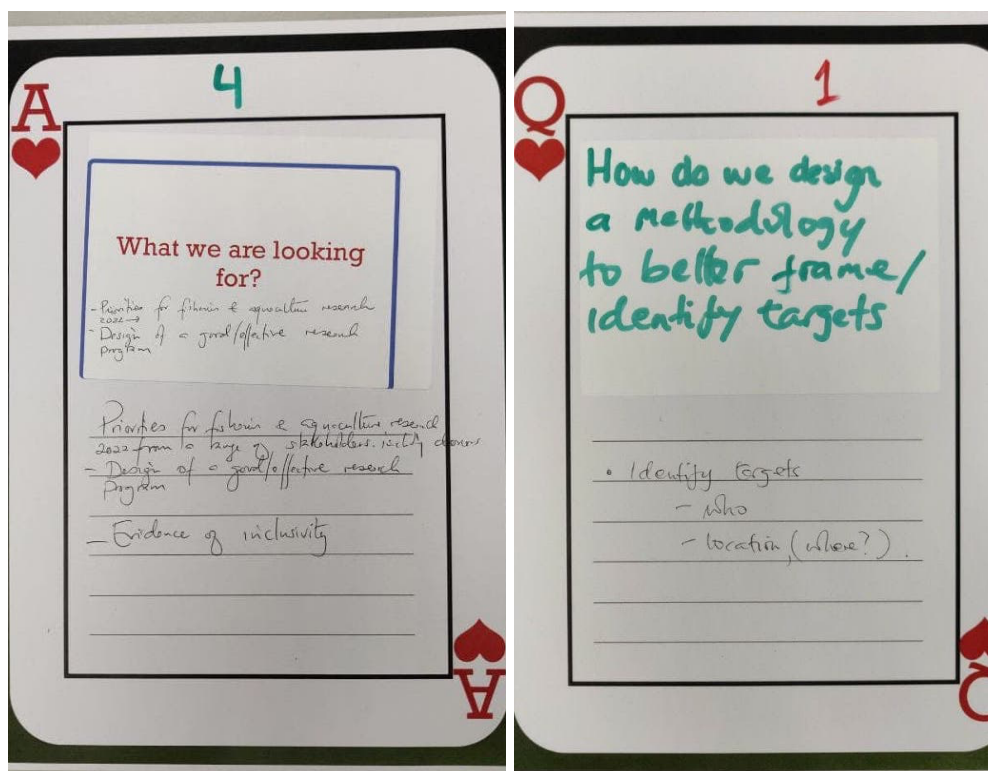 4
A
What we are looking
for?
- Priorities for fisheries & aquaculture research
2022 →
- Design of a good/effective research
program
Priorities for fisheries & aquaculture research
2022 from a range of stakeholders. donors
- Design of a good/effective research
program
- Evidence of inclusivity
A
1
Q
How do we design
a methodology
to better frame/
identify targets
• Identify targets
- who
- location, (where?).
Q